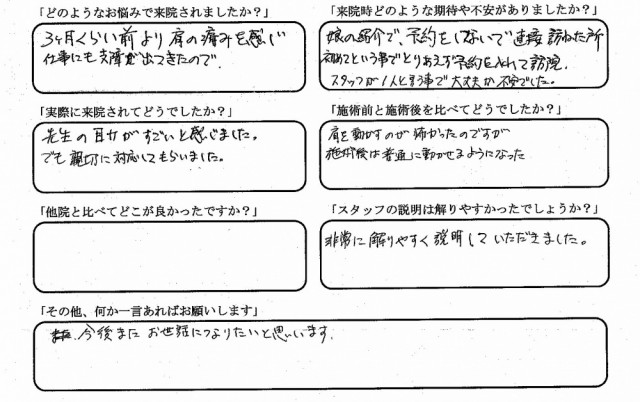 「どのようなお悩みで来院されましたか？」
3ヶ月くらい前より肩の痛みを感じ
仕事にも支障が出てきたので.
「来院時どのような期待や不安がありましたか？」
娘の紹介で、予約をしないで直接訪ねた所
初めてという事でとりあえず予約を入れて訪院.
スタッフが1人と言う事で大丈夫か不安でした。
「実際に来院されてどうでしたか？」
先生の がすごいと感じました。
でも親切に対応してもらいました。
「施術前と施術後を比べてどうでしたか？」
肩を動かすのが怖かったのですが
施術後は普通に動かせるようになった
「他院と比べてどこが良かったですか？」
「スタッフの説明は解りやすかったでしょうか？」
非常に解りやすく説明していただきました。
「その他、何か一言あればお願いします」
今後またお世話になりたいと思います.